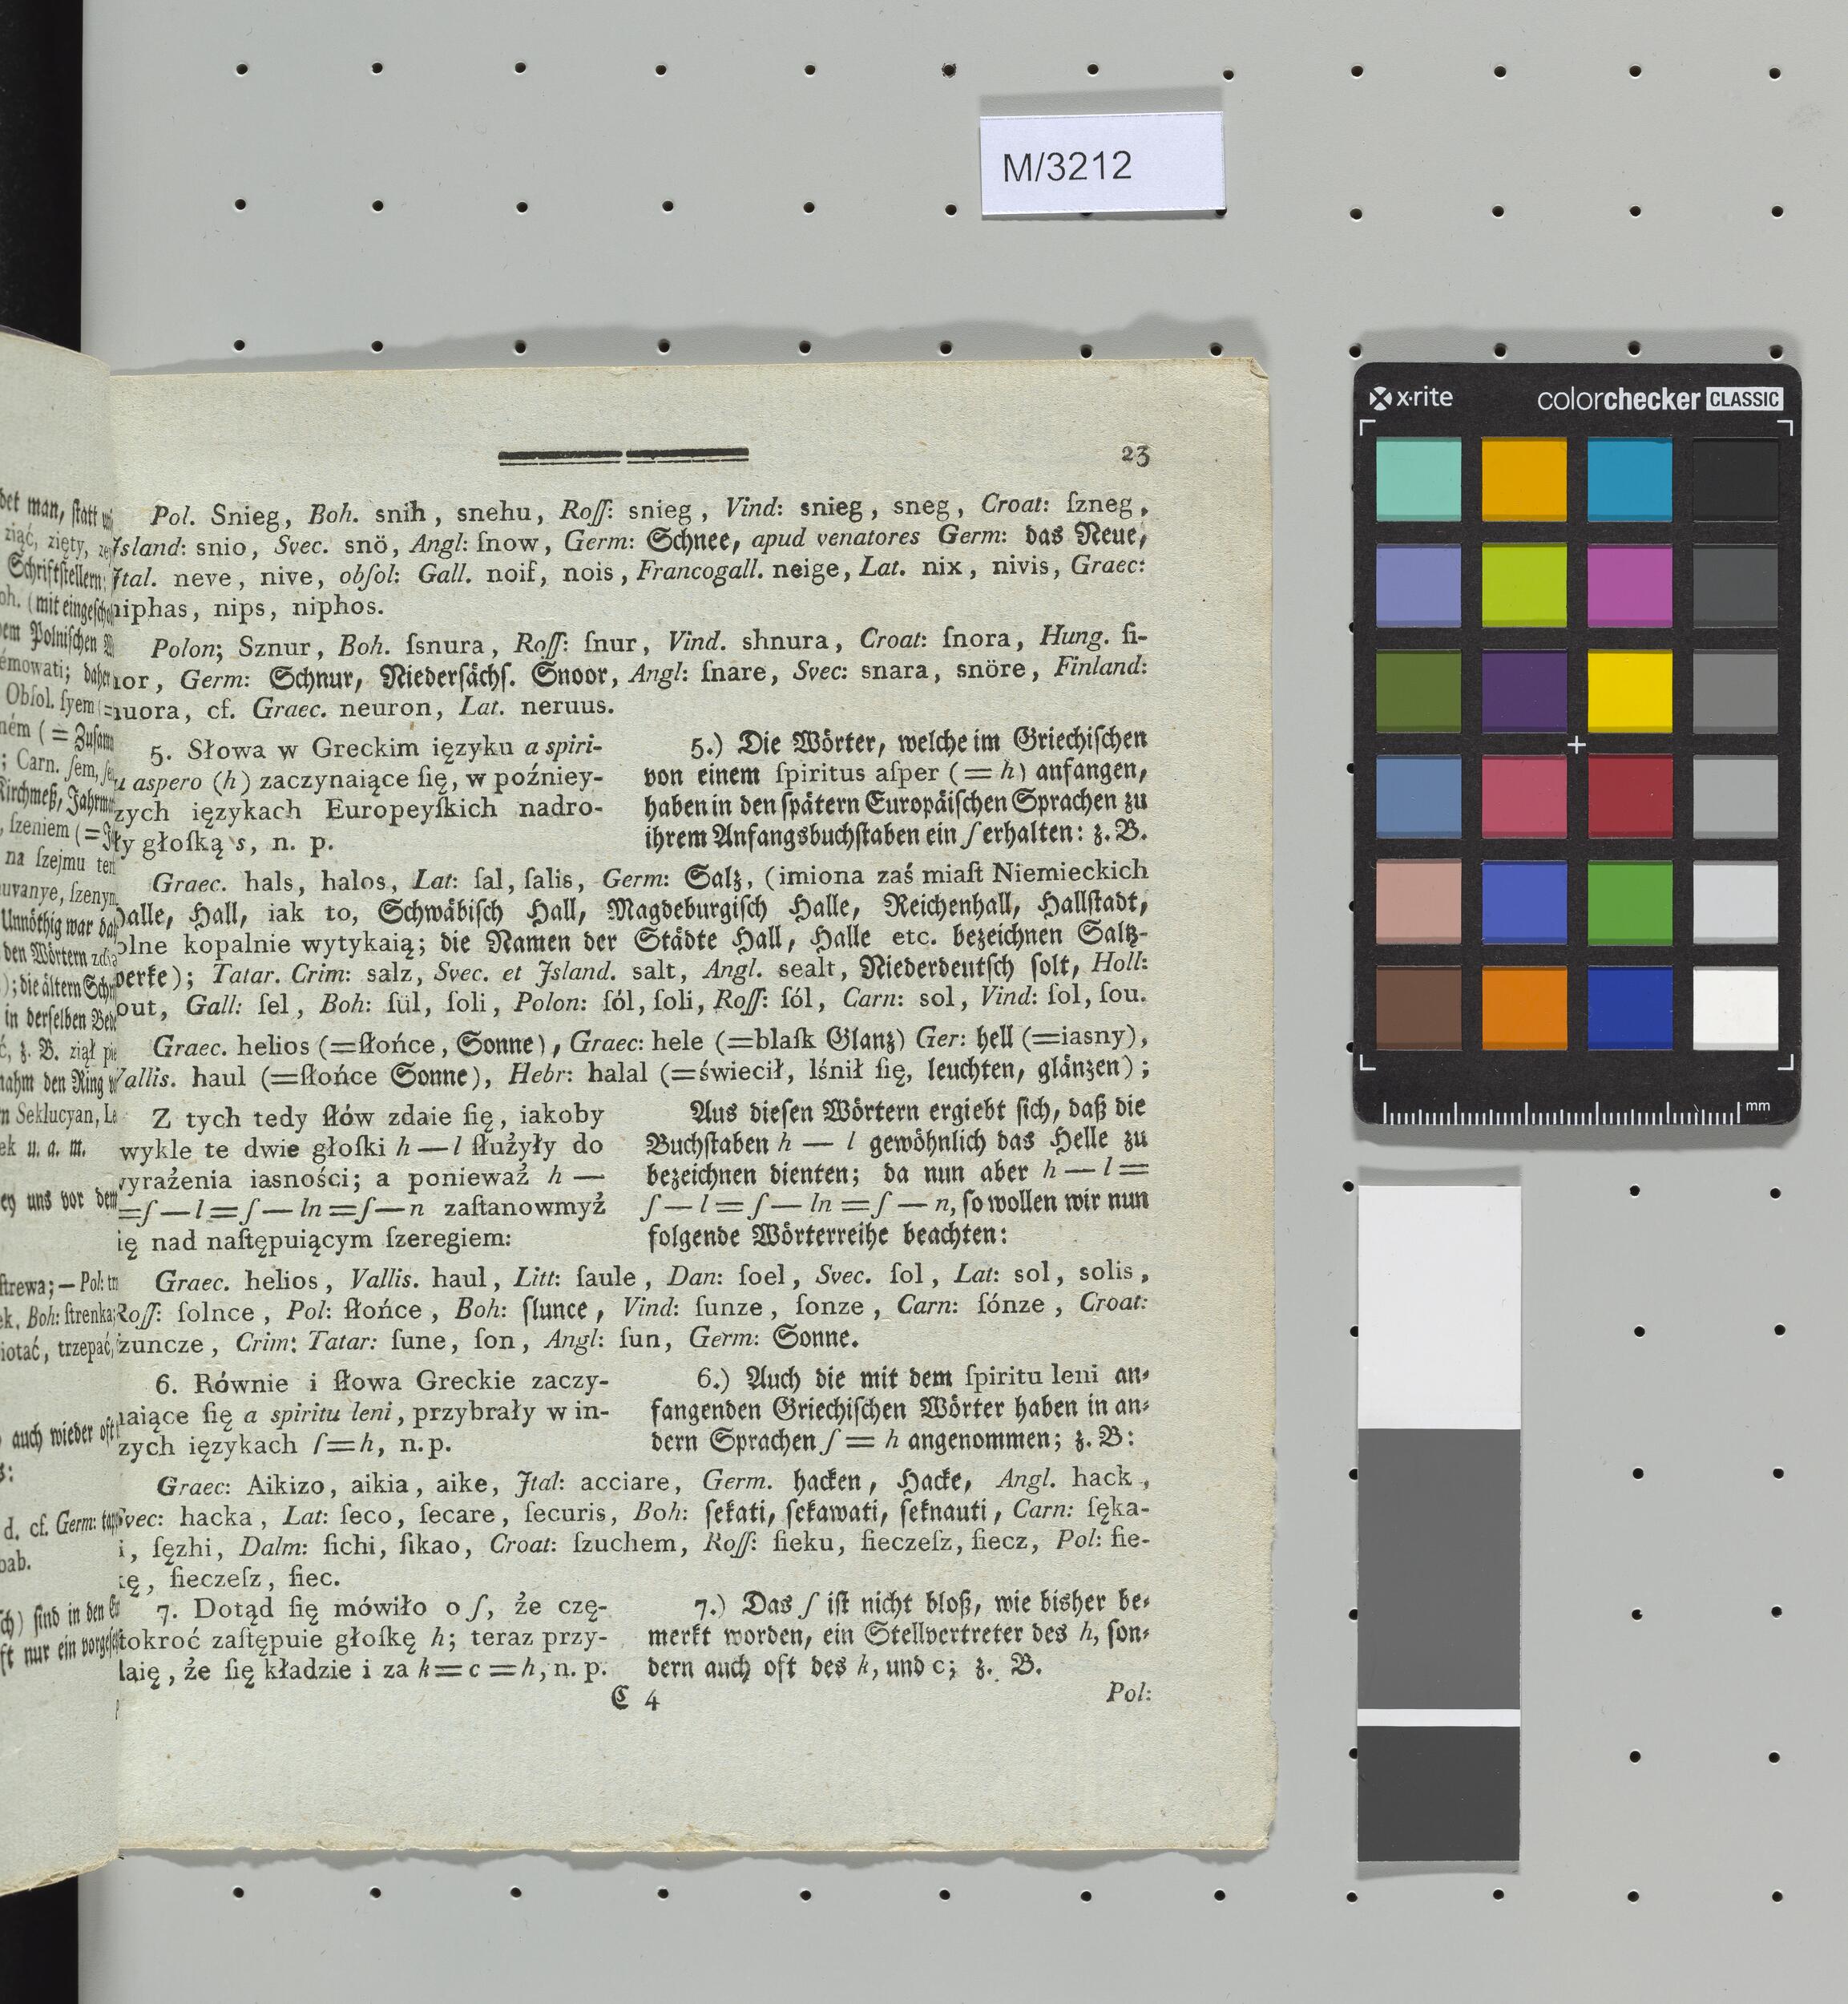 M/3212
x·rite colorchecker CLASSIC
mm
23
Pol. Snieg, Boh. snih, snehu, Roſſ: snieg, Vind: snieg, sneg, Croat: ſzneg,
Island: snio, Svec. snö, Angl: ſnow, Germ: Schnee, apud venatores Germ: das Neue,
Ital. neve, nive, obſol: Gall. noif, nois, Francogall. neige, Lat. nix, nivis, Graec:
niphas, nips, niphos.
Polon; Sznur, Boh. ſsnura, Roſſ: ſnur, Vind. shnura, Croat: ſnora, Hung. ſi-
nor, Germ: Schnur, Niederſächſ. Snoor, Angl: ſnare, Svec: snara, snöre, Finland:
nuora, cf. Graec. neuron, Lat. neruus.
5. Słowa w Greckim ięzyku a spiri-
u aspero (h) zaczynaiące ſię, w poźniey-
zych ięzykach Europeyſkich nadro-
ły głoſką s, n. p.
5.) Die Wörter, welche im Griechiſchen
von einem ſpiritus aſper (= h) anfangen,
haben in den ſpätern Europäiſchen Sprachen zu
ihrem Anfangsbuchſtaben ein ſ erhalten: z. B.
Graec. hals, halos, Lat: ſal, ſalis, Germ: Salz, (imiona zaś miaſt Niemieckich
Halle, Hall, iak to, Schwäbiſch Hall, Magdeburgiſch Halle, Reichenhall, Hallſtadt,
olne kopalnie wytykaią; die Namen der Städte Hall, Halle etc. bezeichnen Saltz-
werke); Tatar. Crim: salz, Svec. et Island. salt, Angl. sealt, Niederdeutſch ſolt, Holl:
out, Gall: ſel, Boh: ſül, ſoli, Polon: ſól, ſoli, Roſſ: ſól, Carn: sol, Vind: ſol, ſou.
Graec. helios (=ſłońce, Sonne), Graec: hele (=blaſk Glanz) Ger: hell (=iasny),
Vallis. haul (=ſłońce Sonne), Hebr: halal (=świecił, lśnił ſię, leuchten, glänzen);
Z tych tedy ſłów zdaie ſię, iakoby
wykle te dwie głoſki h—l ſłużyły do
wyrażenia iasności; a ponieważ h —
=ſ—l=ſ—ln=ſ—n zaſtanowmyż
ię nad naſtępuiącym ſzeregiem:
Aus dieſen Wörtern ergiebt ſich, daß die
Buchſtaben h — l gewöhnlich das Helle zu
bezeichnen dienten; da nun aber h — l =
ſ — l = ſ — ln = ſ — n, ſo wollen wir nun
folgende Wörterreihe beachten:
Graec. helios, Vallis. haul, Litt: ſaule, Dan: ſoel, Svec. ſol, Lat: sol, solis,
Roſſ: ſolnce, Pol: ſłońce, Boh: ſlunce, Vind: ſunze, ſonze, Carn: ſónze, Croat:
ſzuncze, Crim: Tatar: ſune, ſon, Angl: ſun, Germ: Sonne.
6. Równie i ſłowa Greckie zaczy-
naiące ſię a spiritu leni, przybrały w in-
zych ięzykach ſ=h, n.p.
6.) Auch die mit dem ſpiritu leni an-
fangenden Griechiſchen Wörter haben in an-
dern Sprachen ſ = h angenommen; z. B:
Graec: Aikizo, aikia, aike, Ital: acciare, Germ. hacken, Hacke, Angl. hack,
Svec: hacka, Lat: ſeco, ſecare, ſecuris, Boh: ſekati, ſekawati, ſeknauti, Carn: ſęka-
i, ſęzhi, Dalm: ſichi, ſikao, Croat: ſzuchem, Roſſ: ſieku, ſieczeſz, ſiecz, Pol: ſie-
kę, ſieczeſz, ſiec.
7. Dotąd ſię mówiło o ſ, że czę-
tokroć zaſtępuie głoſkę h; teraz przy-
daię, że ſię kładzie i za k=c=h, n. p.
7.) Das ſ iſt nicht bloß, wie bisher be-
merkt worden, ein Stellvertreter des h, ſon-
dern auch oft des k, und c; z. B.
C 4
Pol: